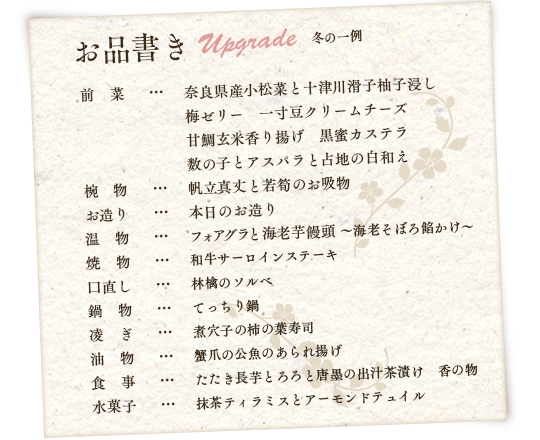 お品書き Upgrade 冬の一例
前 菜 … 奈良県産小松菜と十津川滑子柚子浸し
梅ゼリー 一寸豆クリームチーズ
甘鯛玄米香り揚げ 黒蜜カステラ
数の子とアスパラと占地の白和え
椀 物 … 帆立真丈と若筍のお吸物
お造り … 本日のお造り
温 物 … フォアグラと海老芋饅頭 〜海老そぼろ餡かけ〜
焼 物 … 和牛サーロインステーキ
口直し … 林檎のソルベ
鍋 物 … てっちり鍋
凌 ぎ … 煮穴子の柿の葉寿司
油 物 … 蟹爪の公魚のあられ揚げ
食 事 … たたき長芋とろろと唐墨の出汁茶漬け 香の物
水菓子 … 抹茶ティラミスとアーモンドテュイル